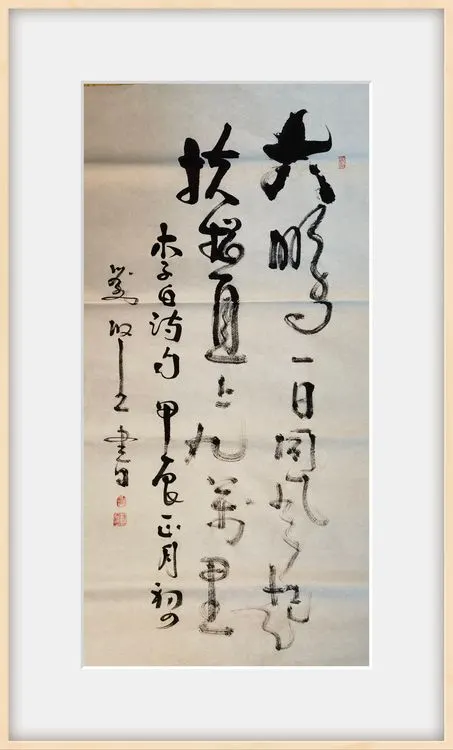 大鵬一日同风起
扶摇直上九萬里
李白诗句甲辰正月初
書